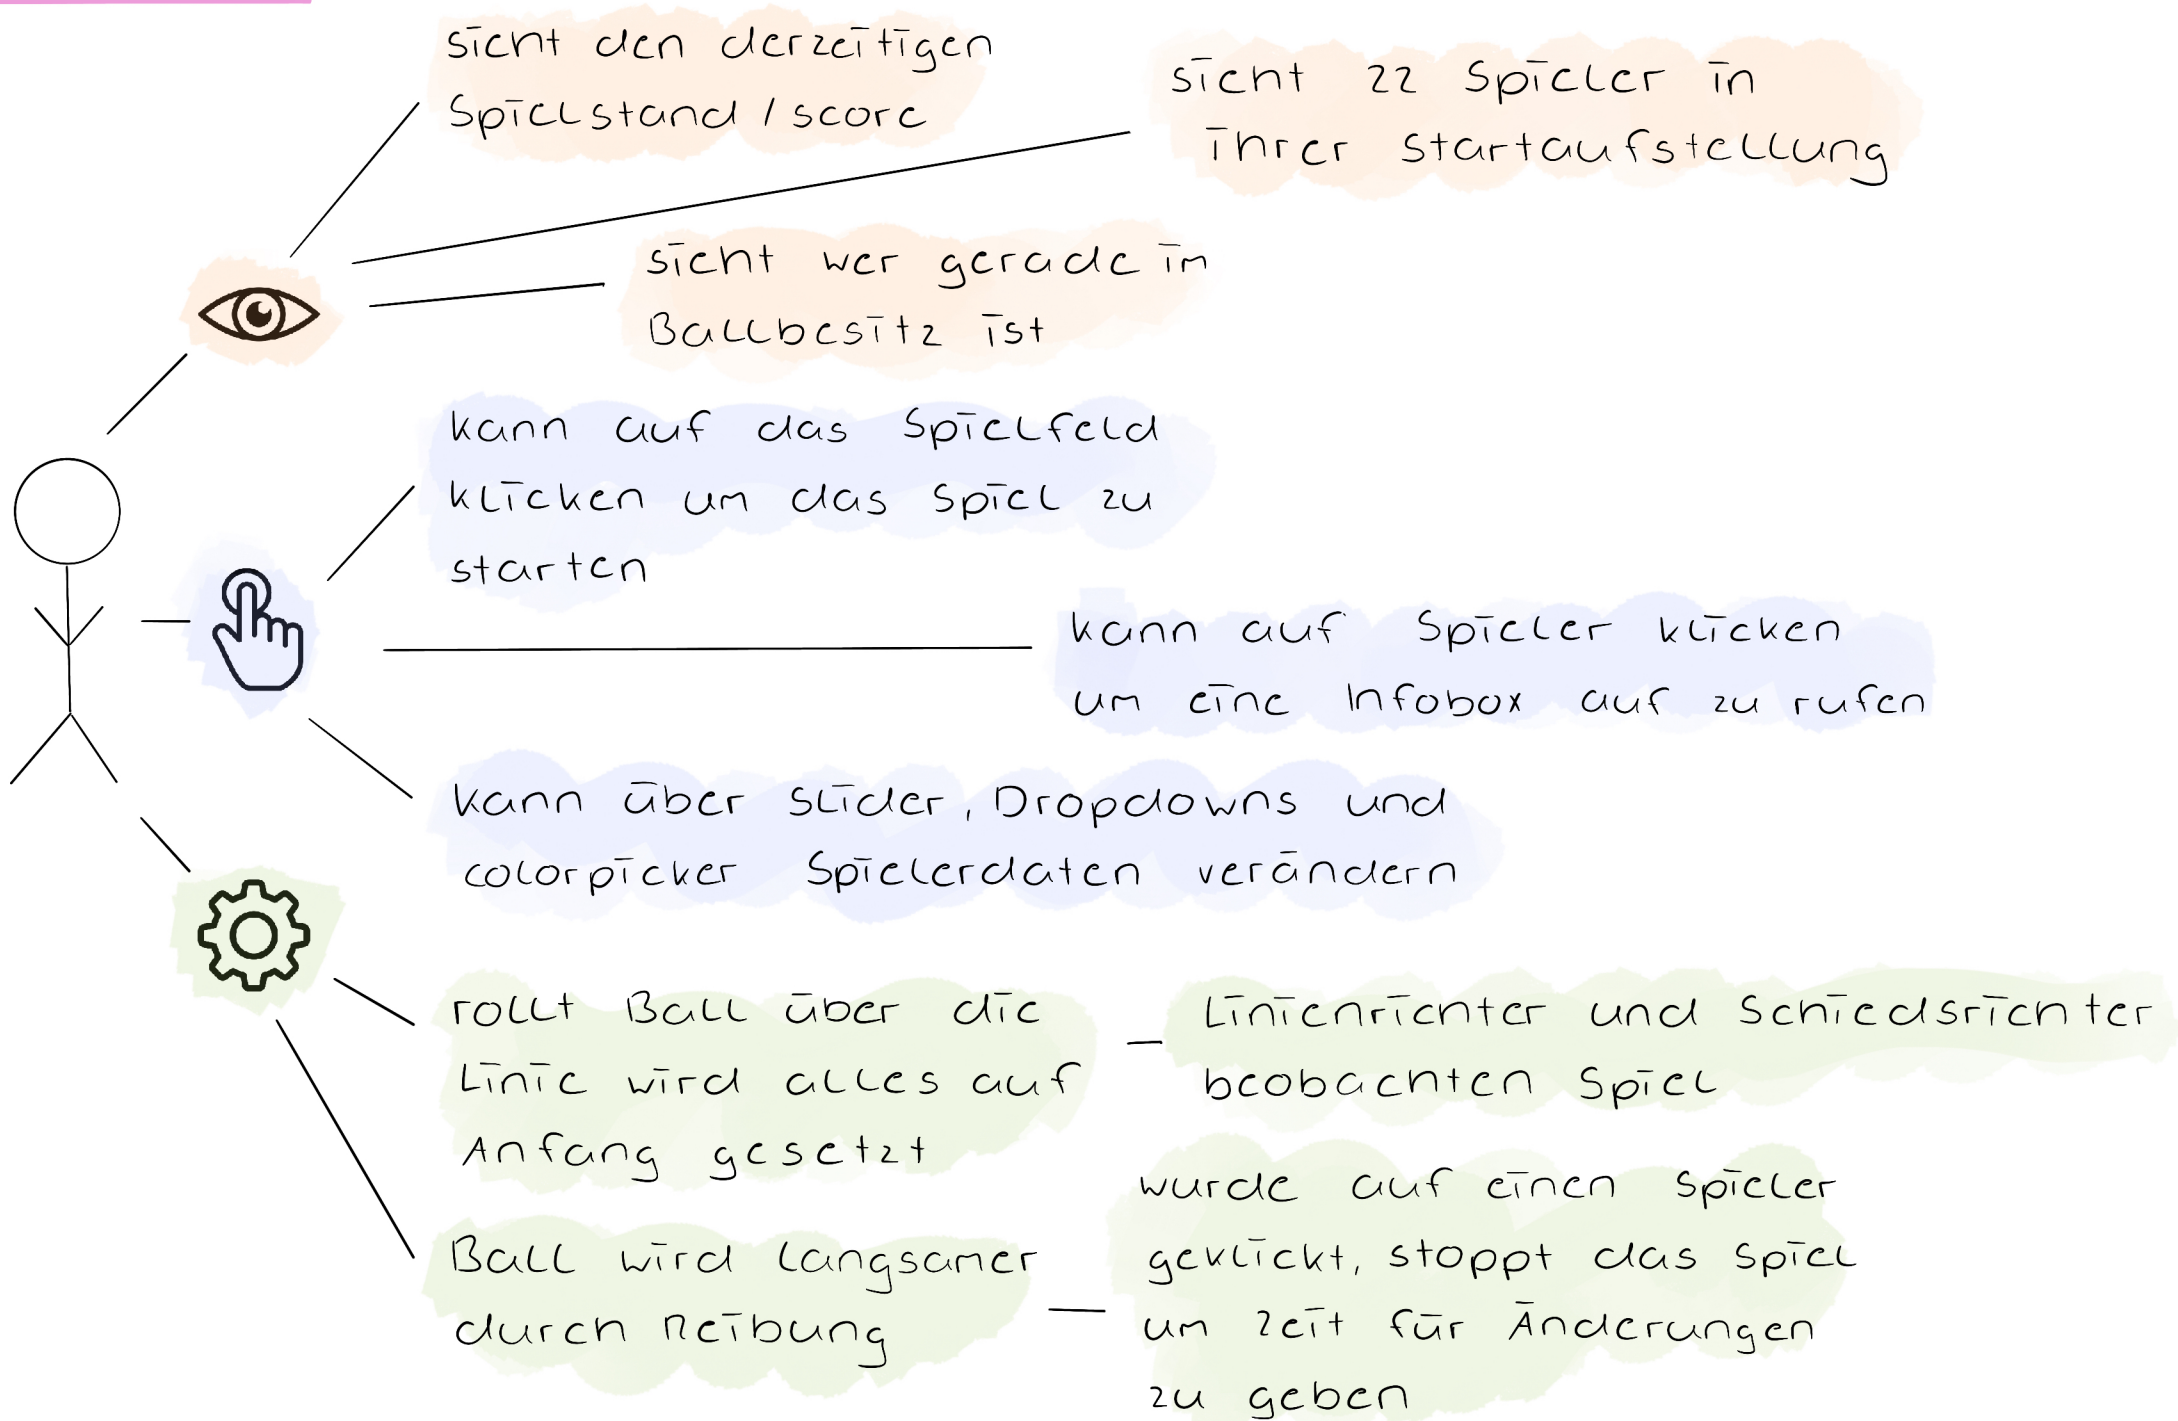 sieht den derzeitigen
Spielstand / score
sieht 22 Spieler in
ihrer Startaufstellung
sieht wer gerade im
Ballbesitz ist
kann auf das Spielfeld
klicken um das Spiel zu
starten
kann auf Spieler klicken
um eine Infobox auf zu rufen
kann über Slider, Dropdowns und
colorpicker Spielerdaten verändern
rollt Ball über die
Linie wird alles auf
Anfang gesetzt
Linienrichter und Schiedsrichter
beobachten Spiel
Ball wird langsamer
durch Reibung
wurde auf einen Spieler
geklickt, stoppt das Spiel
um Zeit für Änderungen
zu geben